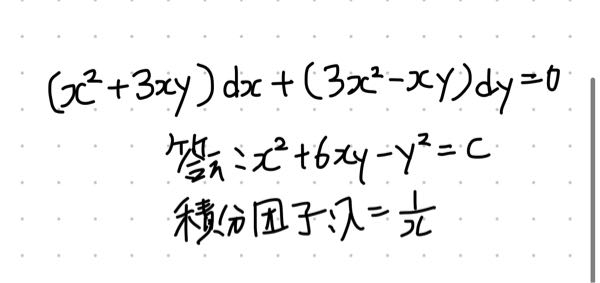 (x²+3xy)dx+(3x²-xy)dy=0
答:x²+6xy-y²=C
積分因子:λ=1/x